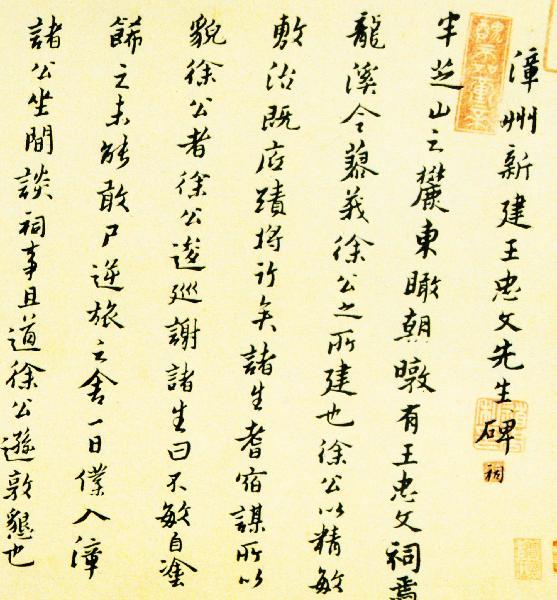 漳州新建王忠文先生碑
祠
半芝山之麓東瞰朝暾有王忠文祠焉
龍溪令蓼義徐公之所建也徐公以精敏
敷治既底蹟將行矣諸生耆宿謀所以
貌徐公者徐公逡巡謝諸生曰不敏自塗
餙之未能敢尸逆旅之舍一日僕入漳
諸公坐間談祠事且道徐公遜敦懇也